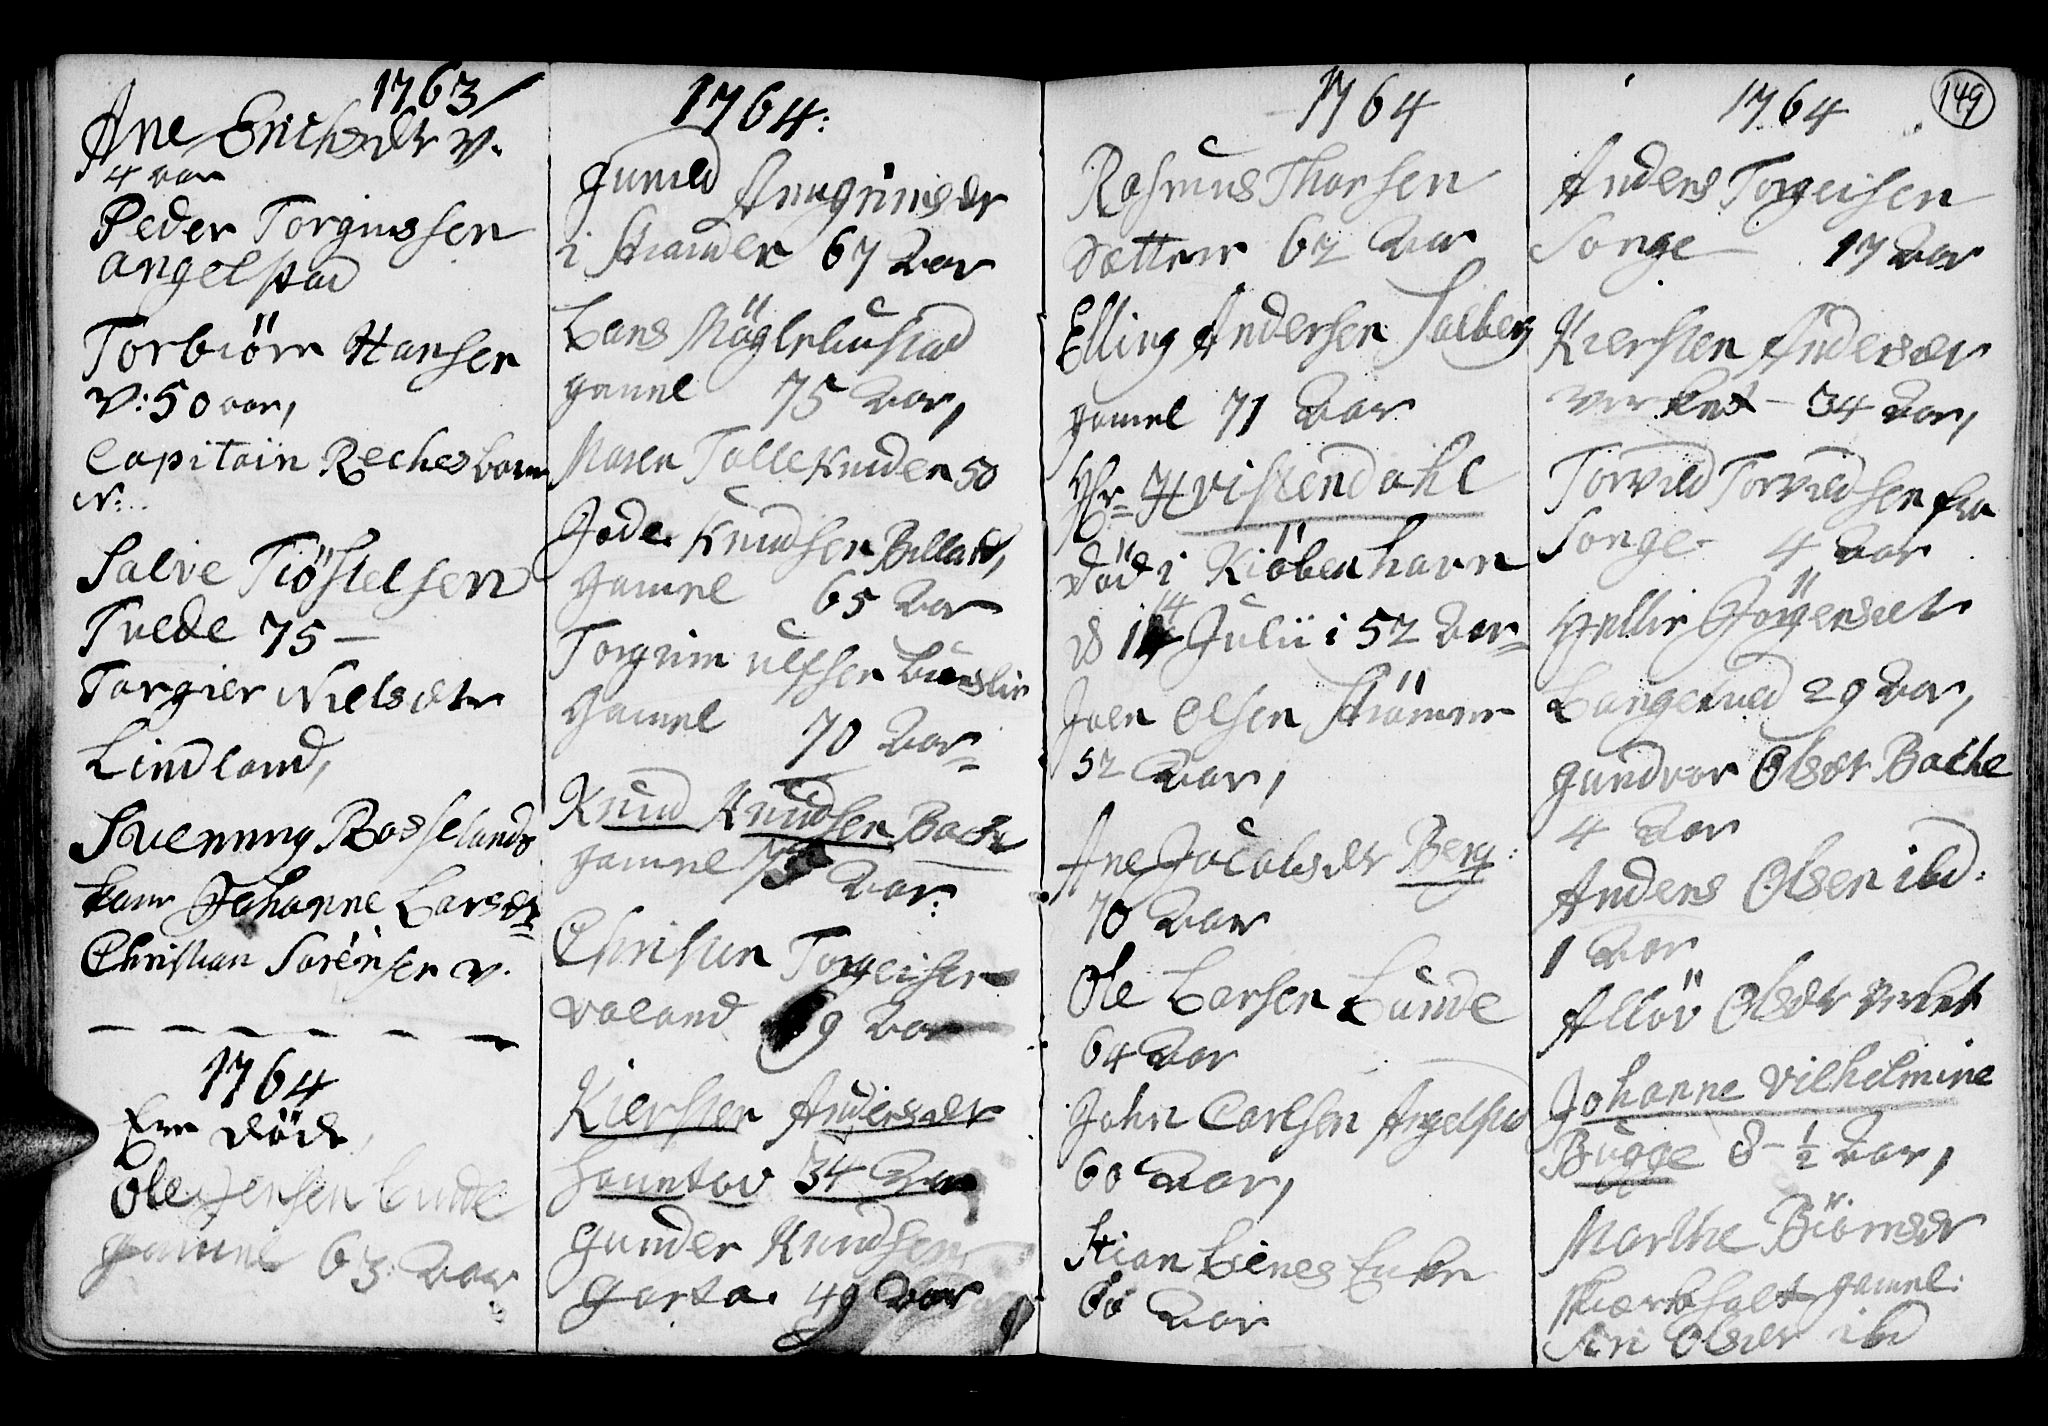 1763
Ane Erichsdtr v.
4 aar
Peder Torgiussen
Angelstad
Torbiörn Hansen
v: 50 aar,
Capitain Reches barn
v:
Salve Tiöstelsen
Tvede 75 —
Torgier Nielsdtr
Lindland,
Svenung Rosselands
kone Johanne Larsdtr
Christian Sörensen v.
1764
Ere döde,
Ole Jensen Lunde
gamel 63 Aar
1764:
Gunild Arngrimsdr
i Strander 67 Aar
Lars Nöglebustad
gamel 75 Aar,
Maren Talleknuden 50
Jode Knudsen Billand,
gamel 65 Aar
Torgrim Ulfsen
gamel 70 Aar
Knud Knudsen Bache
gamel Aar:
Christen Torgeisen
Valand 9 Aar
Kiersten Andersdr
Haumtad 34 Aar
Gunder Knudsen
Garta 49 Aar
1764
Rasmus Thorsen
Sætter 62 Aar
Elling Andersen Solberg
gamel 71 Aar
Hr Hvistendahl
död i Kiöbenhavn
d 14 Julii i 52 Aar
Joen Olsen Strömme
52 Aar,
Ane Jacobsdr Berg:
70 Aar
Ole Larsen Lunde
64 Aar
John Carlsen Angelstad
60 Aar,
Stian Lienes Enke
60 Aar
1764
149
Anders Torgeisen
Songe — 17 Aar
Kiersten Andersdr
Verket — 34 Aar,
Torvild Torvildsen fra
Songe — 4 Aar
Hellie Jörgensdt
Langerud 29 Aar,
Gundvor Olsdr Bache
4 Aar
Anders Olsen ibd:
1 Aar
Allöv Olsdr Verket
Johanne Vilhelmine
Bugge 8 - ½ Aar,
Marthe Biörnsdr
Skierkholt gamel:
Siri Olsdr ibd